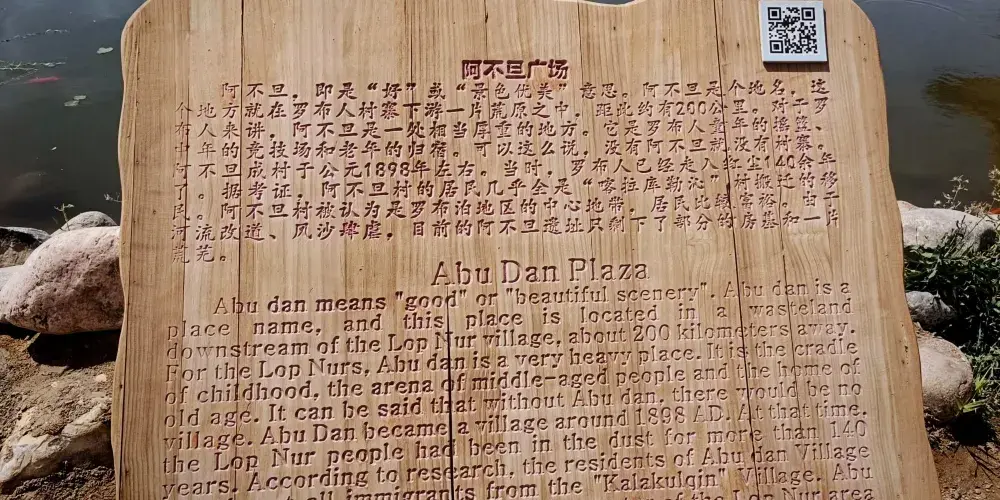 阿不旦广场
阿不旦，即是“好”或“景色优美”意思。阿不旦是个地名，这
个地方就在罗布人村寨下游一片荒原之中，距此约有200公里。对于罗
布人来讲，阿不旦是一处相当厚重的地方。它是罗布人童年的摇篮、
中年的竞技场和老年的归宿。可以这么说，没有阿不旦就没有村寨。
阿不旦成村于公元1898年左右。当时，罗布人已经走入红尘140余年
了。据考证，阿不旦村的居民几乎全是“喀拉库勒沁”村搬迁的移
民。阿不旦村被认为是罗布泊地区的中心地带，居民比较富裕。由于
河流改道、风沙肆虐，目前的阿不旦遗址只剩下了部分的房基和一片
荒芜。
Abu Dan Plaza
Abu dan means "good" or "beautiful scenery". Abu dan is a
place name, and this place is located in a wasteland
downstream of the Lop Nur village, about 200 kilometers away.
For the Lop Nurs, Abu dan is a very heavy place. It is the cradle
of childhood, the arena of middle-aged people and the home of
old age. It can be said that without Abu dan, there would be no
village. Abu Dan became a village around 1898 AD. At that time,
the Lop Nur people had been in the dust for more than 140
years. According to research, the residents of Abu dan Village
all immigrants from the "Kalakulqin" Village. Abu
of the Lop Nur area